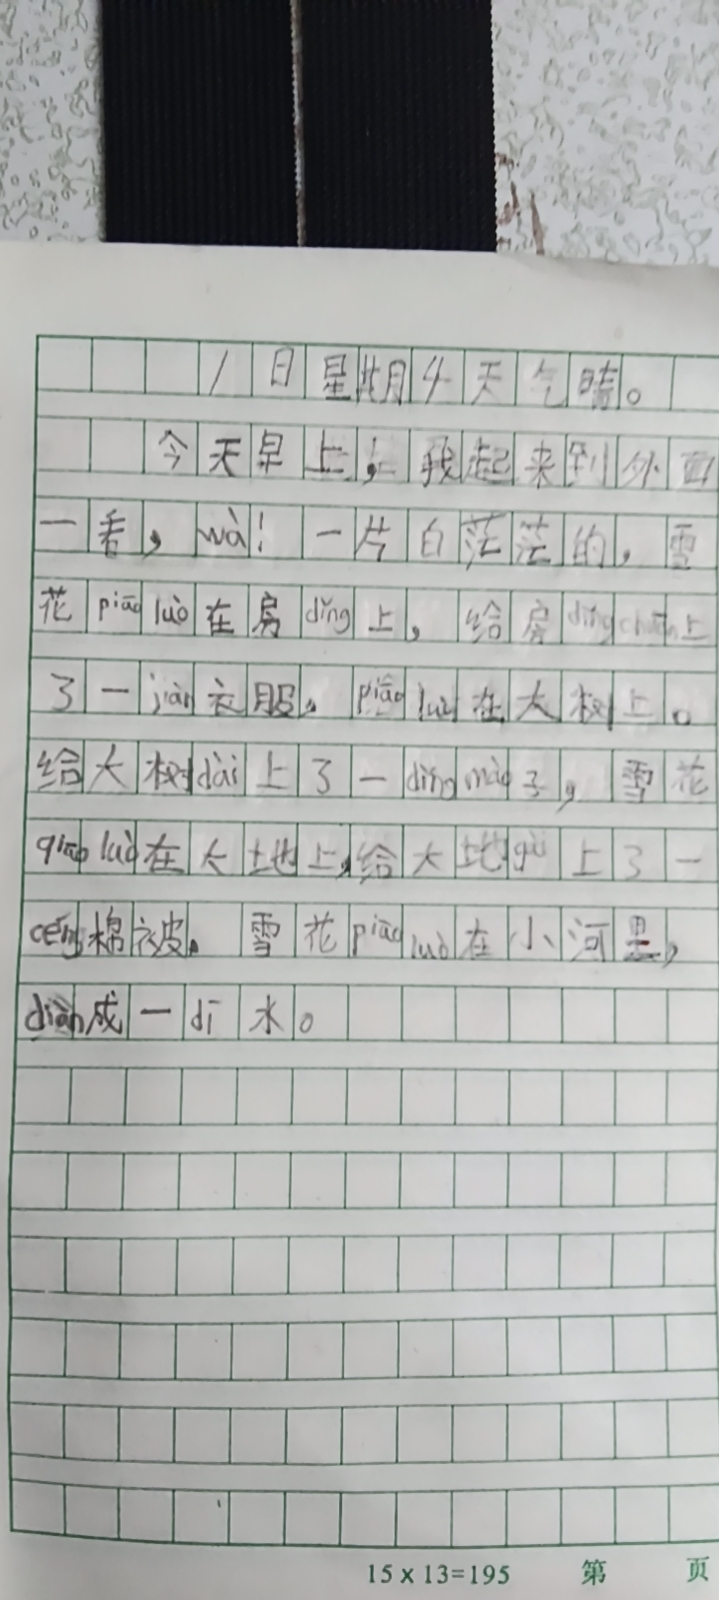 1日星期4天气晴。
今天早上，我起来到外面
一看，wà！一片白茫茫的，雪
花piāo luò在房dǐng上，给房dǐng chuān上
了一jiàn衣服，piāo luò在大树上。
给大树dài上了一dǐng mào子，雪花
qiāo luò在大地上，给大地gù上了一
céng棉被。雪花piāo luò在小河里，
diàn成一dī水。
15×13=195 第 页